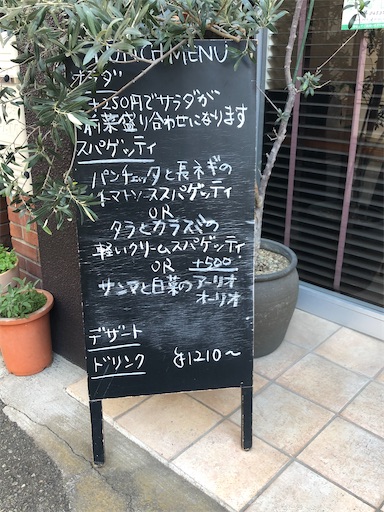 LUNCH MENU
サラダ
+250円でサラダが
前菜盛り合わせになります
スパゲッティ
パンチェッタと長ネギの
トマトソーススパゲッティ
OR
タラとカラスミの
軽いクリームスパゲッティ
OR +500
サンマと白菜のアーリオ
オーリオ
デザート
ドリンク ¥1210〜